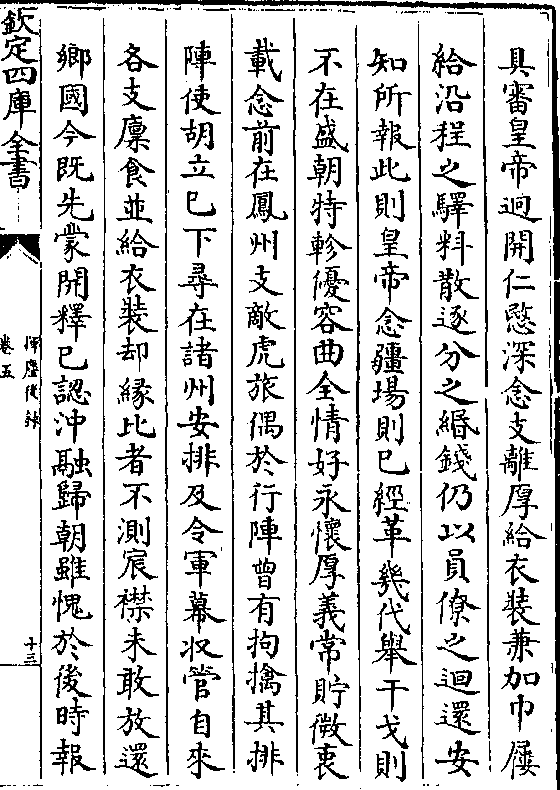 具審皇帝迥開仁愍深念支離厚給衣裝兼加巾屨
給沿程之驛料散逐分之緡錢仍以員僚之迴還安
知所報此則皇帝念疆場則已經革幾代舉干戈則
不在盛朝特軫優容曲全情好永懷厚義常貯微衷
載念前在鳳州支敵虎旅偶於行陣曾有拘擒其排
陣使胡立已下尋在諸州安排及令軍幕収管自來
各支廪食並給衣裝却緣比者不測宸襟未敢放還
鄉國今既先蒙開釋已認沖融歸朝雖愧於後時報
欽定四庫全書
揮麈後錄
卷五
十三